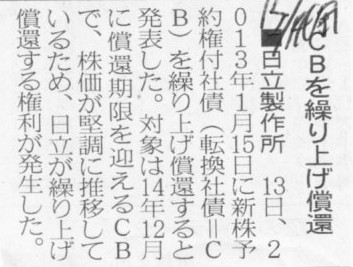 CBを繰り上げ償還
■日立製作所 13日、2
013年1月15日に新株予
約権付社債(転換社債=C
B)を繰り上げ償還すると
発表した。対象は14年12月
に償還期限を迎えるCB
で、株価が堅調に推移して
いるため、日立が繰り上げ
償還する権利が発生した。